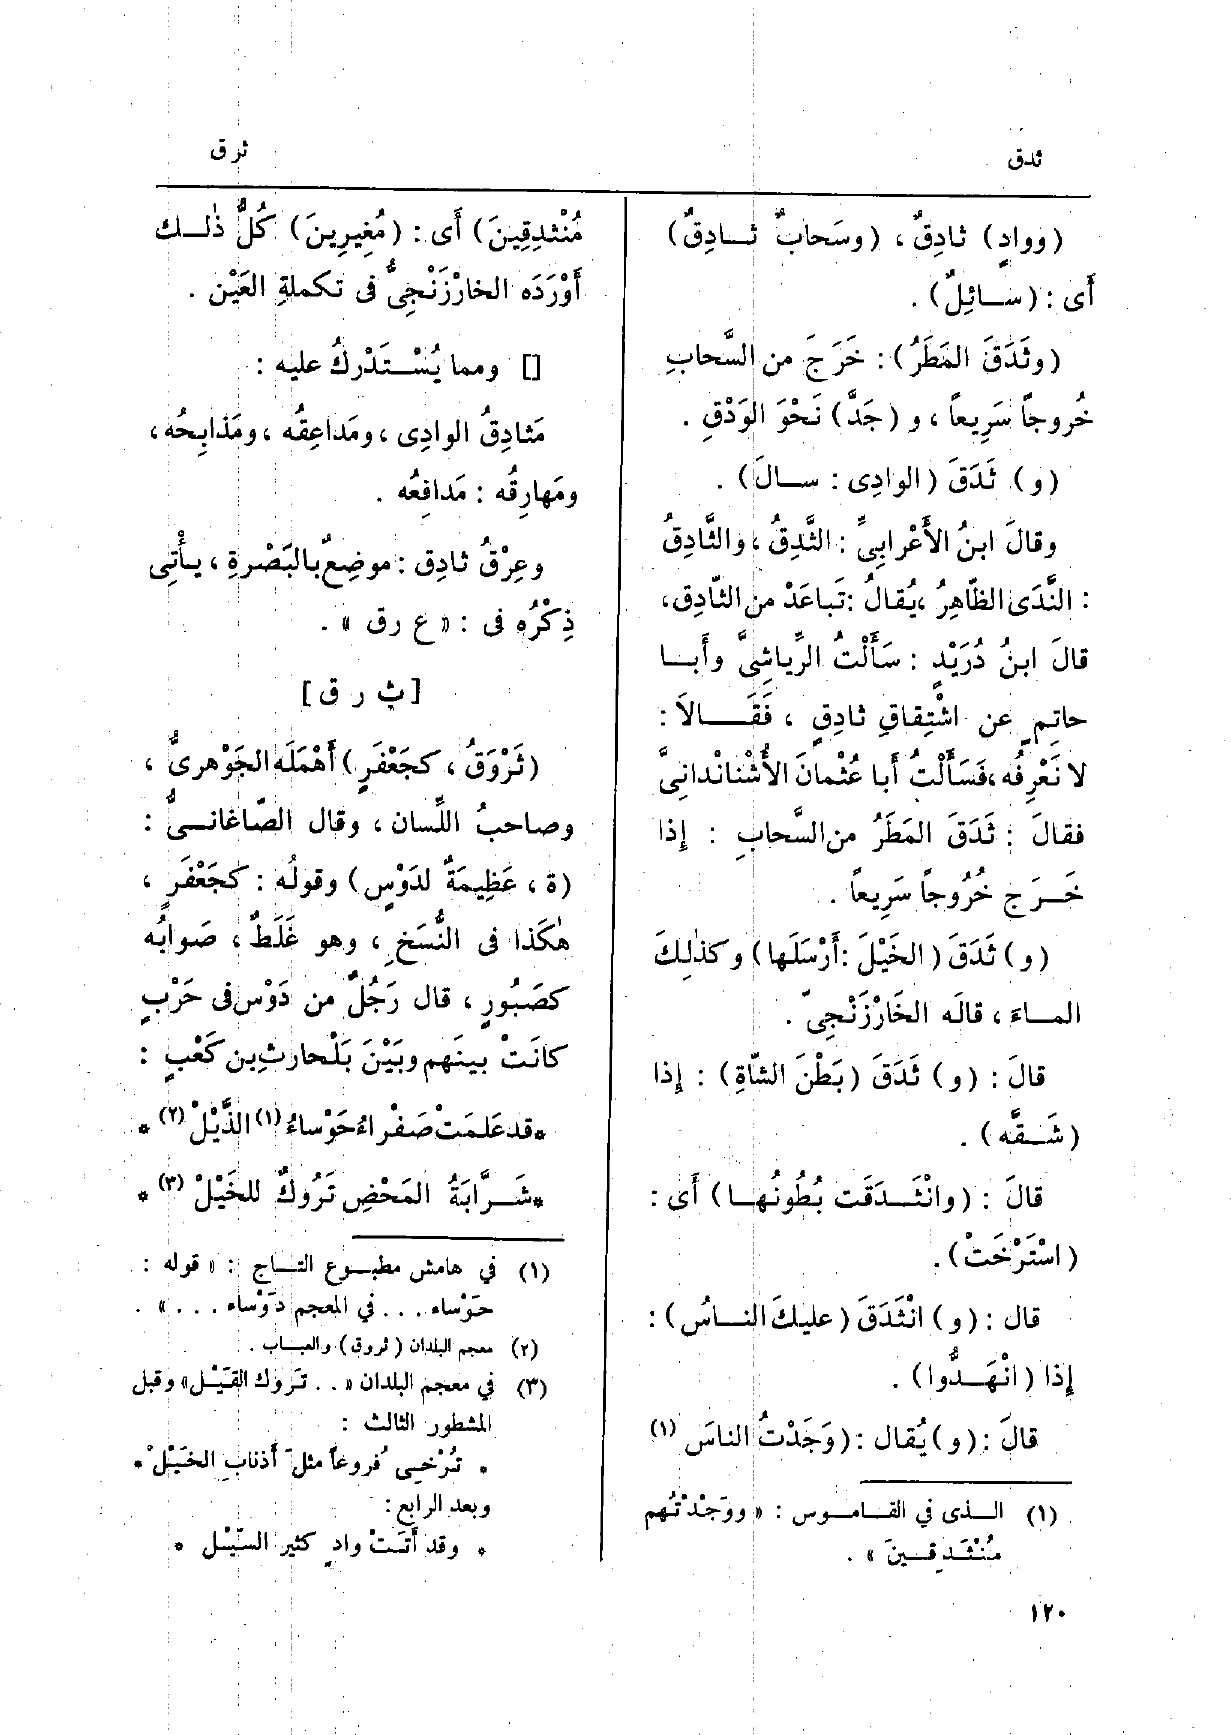 ثدق
ثرق
(ووادٍ) ثادِقٌ، (وسَحابٌ ثــادِقٌ)
أَى : (ســائِلٌ) .
(وثَدَقَ المَطَرُ) : خَرَجَ من السَّحابِ
خُروجاً سَرِيعاً، و (جَدَّ) نَحْوَ الوَدْقِ .
(و) ثَدَقَ (الوادِى : ســالَ) .
وقالَ ابنُ الأَعْرابِيِّ : الثَّدِقُ، والثَّادِقُ
: النَّدَى الظّاهِرُ، يُقالُ : تَباعَدْ من الثّادِقِ،
قالَ ابنُ دُرَيْدٍ : سَأَلْتُ الرِّياشِىَّ وأَبــا
حاتِمٍ عن اشْتِقاقِ ثادِقٍ ، فَقَــالاَ :
لا نَعْرِفُه، فَسَأَلْتُ أَبا عُثْمانَ الأُشْنانْدانِىَّ
فقالَ : ثَدَقَ المَطَرُ من السَّحابِ : إِذا
خَــرَج خُرُوجاً سَرِيعاً .
(و) ثَدَقَ (الخَيْلَ : أَرْسَلَها) وكذٰلِكَ
المــاءَ، قالَه الخَارْزَنْجِىّ .
قالَ : (و) ثَدَقَ (بَطْنَ الشّاةِ) : إِذا
(شَــقَّه) .
قالَ : (وانْثَــدَقَت بُطُونُهــا) أَى :
(اسْتَرْخَتْ) .
قال : (و) انْثَدَقَ (عليكَ النــاسُ) :
إِذا (انْهَــدُّوا) .
قالَ : (و) يُقال : (وَجَدْتُ الناسَ (١)
(١) الــذى في القــامــوس : « ووَجَدْتُهم
مُنْثَــدِقــينَ » .
مُنْثَدِقِينَ) أَى : (مُغِيرِينَ) كُلُّ ذٰلــك
أَوْرَدَه الخارْزَنْجِىُّ فى تكملةِ العَيْن .
[] ومما يُسْــتَدْركُ عليه :
مَثادِقُ الوادِى، ومَداعِقُه، ومَذابِحُه،
ومَهارِقُه : مَدافِعُه .
وعِرْقُ ثادِق : موضِعٌ بالبَصْرةِ، يـأْتِى
ذِكْرُه فى : « ع رق » .
[ث ر ق]
(ثَرْوَقُ، كجَعْفَرٍ) أَهْمَلَه الجَوْهرِىُّ،
وصاحبُ اللِّسان، وقال الصّاغانــىُّ :
(ة، عَظِيمَةٌ لدَوْسٍ) وقولُه : كجَعْفَرٍ،
هٰكَذا فى النُّسَخِ، وهو غَلَطٌ، صَوابُه
كصَبُورٍ، قال رَجُلٌ من دَوْس فى حَرْبٍ
كانَتْ بينَهم وبَيْنَ بَلْحارِثِ بن كَعْبٍ :
* قد عَلمَتْ صَفْراءُ حَوْساءُ (١) الذَّيْلْ (٢) *
* شَــرَّابَةُ المَحْضِ تَرُوكٌ للخَيْلْ (٣) *
(١) في هامش مطبــوع التــاج : « قوله :
حَوْساء . . . في المعجم دَوْساء . . . » .
(٢) معجم البلدان (ثروق) والعبــاب .
(٣) في معجم البلدان « . . تَروك القَيْــل » وقبل
المشطور الثالث :
* تُرْخــى فُروعاً مثلَ أذنابِ الخَيْلْ *
وبعد الرابع :
* وقد أتَتْ وادٍ كثير السَّيْــل *
١٢٠